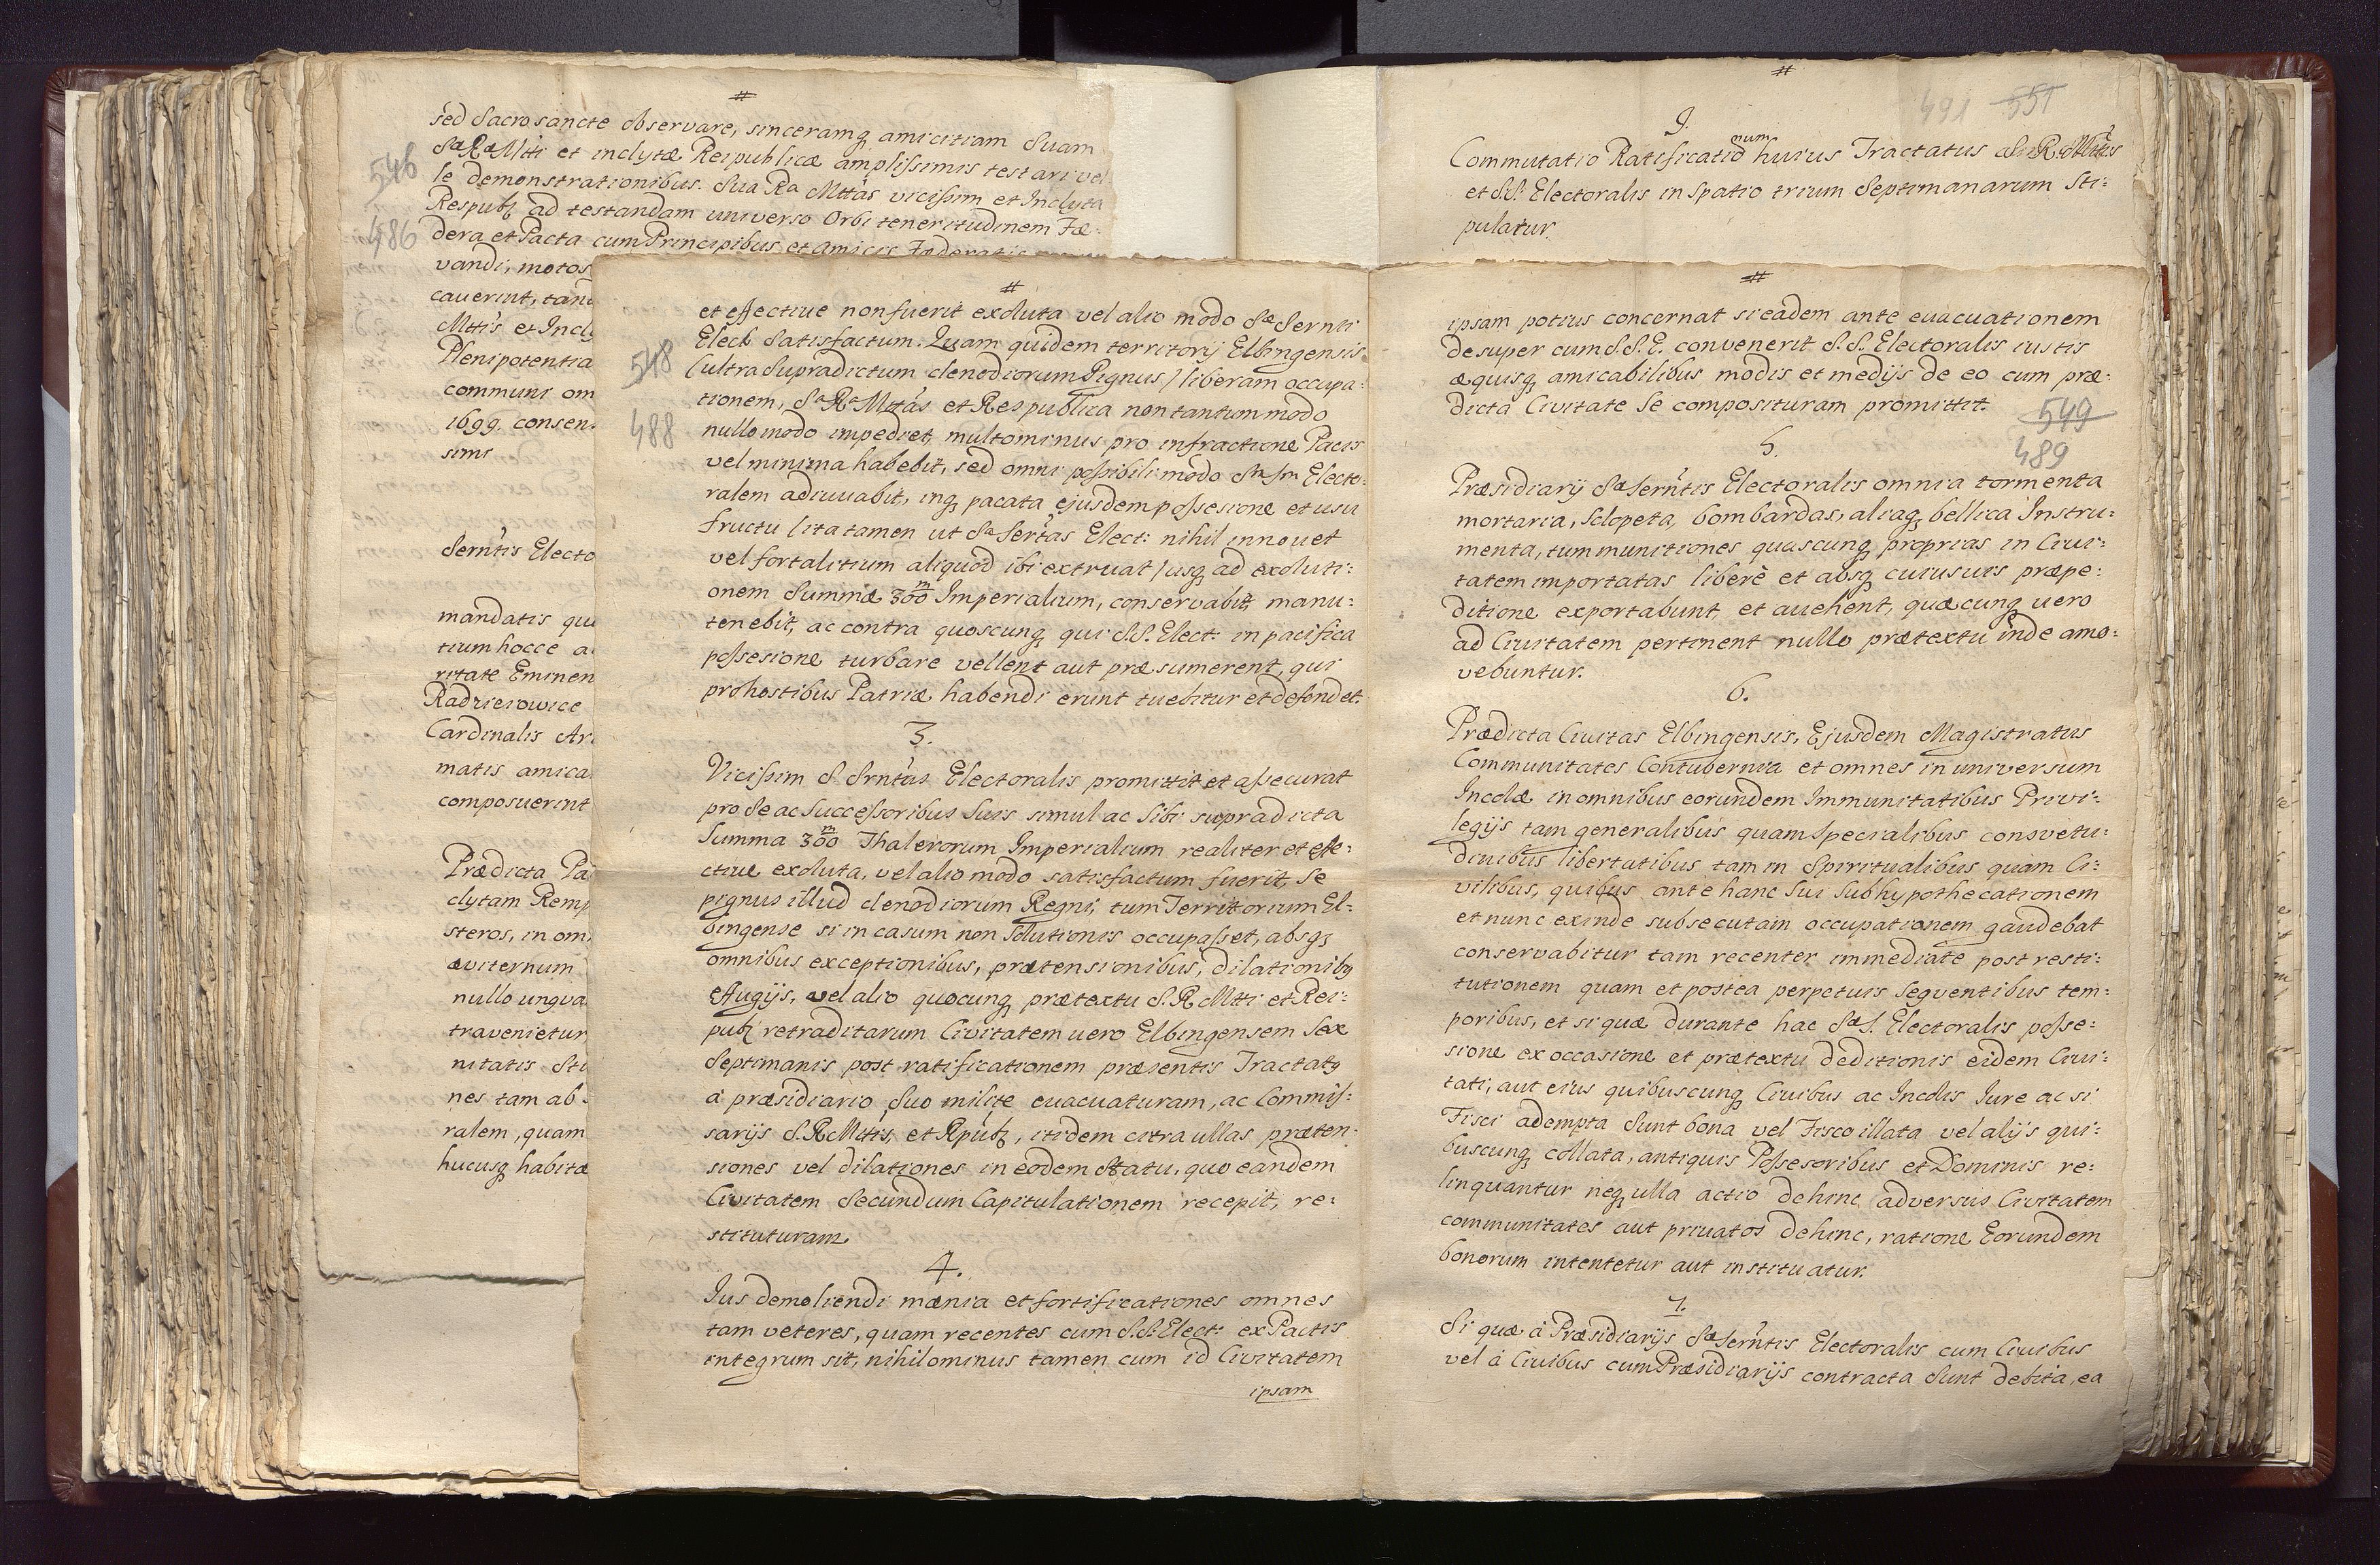 #
sed Sacrosancte observare, sinceramq amicitiam Suam
Sæ Ræ Mtti et inclytæ Reipublicæ amplissimis testari vel
le demonstrationibus. Sua Ra Mttas vicissim et Inclyta
546
Respub ad testandam universo Orbi teneritudinem Fæ:
486
dera et Pacta cum Principibus et amicis Fæderatis
vandi, motos
cauerint, tan
Mttis et Incly
Plenipotentia
communi om
1699. consen
simi
Sernt́is Electo
mandatis qu
tium hocce a
ritate Eminen
Radzieiowice
Cardinalis Ar
matis amica
composuerint
Prædicta Pa
clytam Remp
steros, in om
æviternum
nullo unqua
travenietur
nitatis Sti
nes tam ab
ralem, quam
hucusq habitæ
#
et effective non fuerit exoluta vel alio modo Sæ Sernti
Elect Satisfactum. Quam quidem territorij Elbingensis
548
(ultra Supradictum clenodiorum Pignus) liberam occupa:
tionem, Sa Ra Mttas et Respublica non tantummodo
488
nullo modo impediet, multominus pro infractione Pacis
vel minima habebit, sed omni possibili modo Sm Sm Electo:
ralem adiuuabit, inq pacata ejusdem possesione et usu
fructu (ita tamen ut Sa Sertas Elect: nihil innouet
vel fortalitium aliquod ibi extruat) usq ad exoluti:
onem Summæ 300 m Imperialium, conservabit, manu:
tenebit, ac contra quoscunq qui S.S. Elect: in pacifica
possesione turbare vellent aut præsumerent, qui
pro hostibus Patriæ habendi erunt tuebitur et defendet.
3.
Vicissim S. Srntas Electoralis promittit et assecurat
pro Se ac Successoribus Suis simul ac Sibi supradicta
Summa 300 m Thalerorum Imperialium realiter et effe:
ctiue exoluta, vel alio modo satisfactum fuerit, Se
pignus illud clenodiorum Regni, tum Territorium El:
bingense si in casum non Solutionis occupasset, absq
omnibus exceptionibus, prætensionibus, dilationibq
effugijs, vel alio quocunq prætextu S. R. Mtti et Rei:
pub retraditarum Civitatem uero Elbingensem Sex
Septimanis post ratificationem præsentis Tractatq
à præsidiario Suo milite evacuaturam, ac Commis:
sarijs S. R. Mttis, et Rpub, itidem citra ullas præten:
siones vel dilationes in eodem Statu, quo eandem
Civitatem Secundum Capitulationem recepit, re:
stituturam
4.
Ius demoliendi mænia et fortificationes omnes
tam veteres, quam recentes cum S.S. Elect: ex Pactis
integrum sit, nihilominus tamen cum id Civitatem
ipsam
#
491 551
9.
num
Commutatio Ratificatio huius Tractatus
et S.S. Electoralis in Spatio trium Septimanarum Sti:
pulatur.
#
ipsam potius concernat si eadem ante euacuationem
desuper cum S.S.E. convenerit S.S. Electoralis iustis
æquisq amicabilibus modis et medijs de eo cum præ:
dicta Civitate Se composituram promittit.
549
5.
489
Præsidiarij Sæ Serntis Electoralis omnia tormenta
mortaria, sclopeta, bombardas, aliaq bellica Instru:
menta, tum munitiones quascunq proprias in Ciui:
tatem importatas liberè et absq cuiusuis præpe:
ditione exportabunt, et auehent, quæcunq uero
ad Ciuitatem pertinent nullo prætextu inde amo:
vebuntur.
6.
Prædicta Civitas Elbingensis, Ejusdem Magistratus
Communitates Contubernia et omnes in universum
Incolæ in omnibus eorundem Immunitatibus Privi:
legijs tam generalibus quam Specialibus consvetu:
dinibus libertatibus tam in Spiritualibus quam Ci:
vilibus, quibus ante hanc Sui Subhypothecationem
et nunc exinde subsecutam occupationem gaudebat
conservabitur tam recenter immediate post resti:
tutionem quam et postea perpetuis Seqventibus tem:
poribus, et si quæ durante hac Sæ S. Electoralis posse:
sione ex occasione et prætextu deditionis eidem Ciui:
tati, aut eius quibuscunq Ciuibus ac Incolis Jure ac si
Fisci adempta Sunt bona vel Fisco illata vel alijs qui:
buscunq collata, antiquis Possesoribus et Dominis re:
linquantur neq ulla actio dehinc adversus Civitatem
communitates aut priuatos dehinc, ratione Eorundem
bonorum intentetur aut instituatur.
7.
Si quæ à Præsidiarijs Sæ Serntis Electoralis cum Ciuibus
vel à Ciuibus cum Præsidiarijs contracta Sunt debita, ea